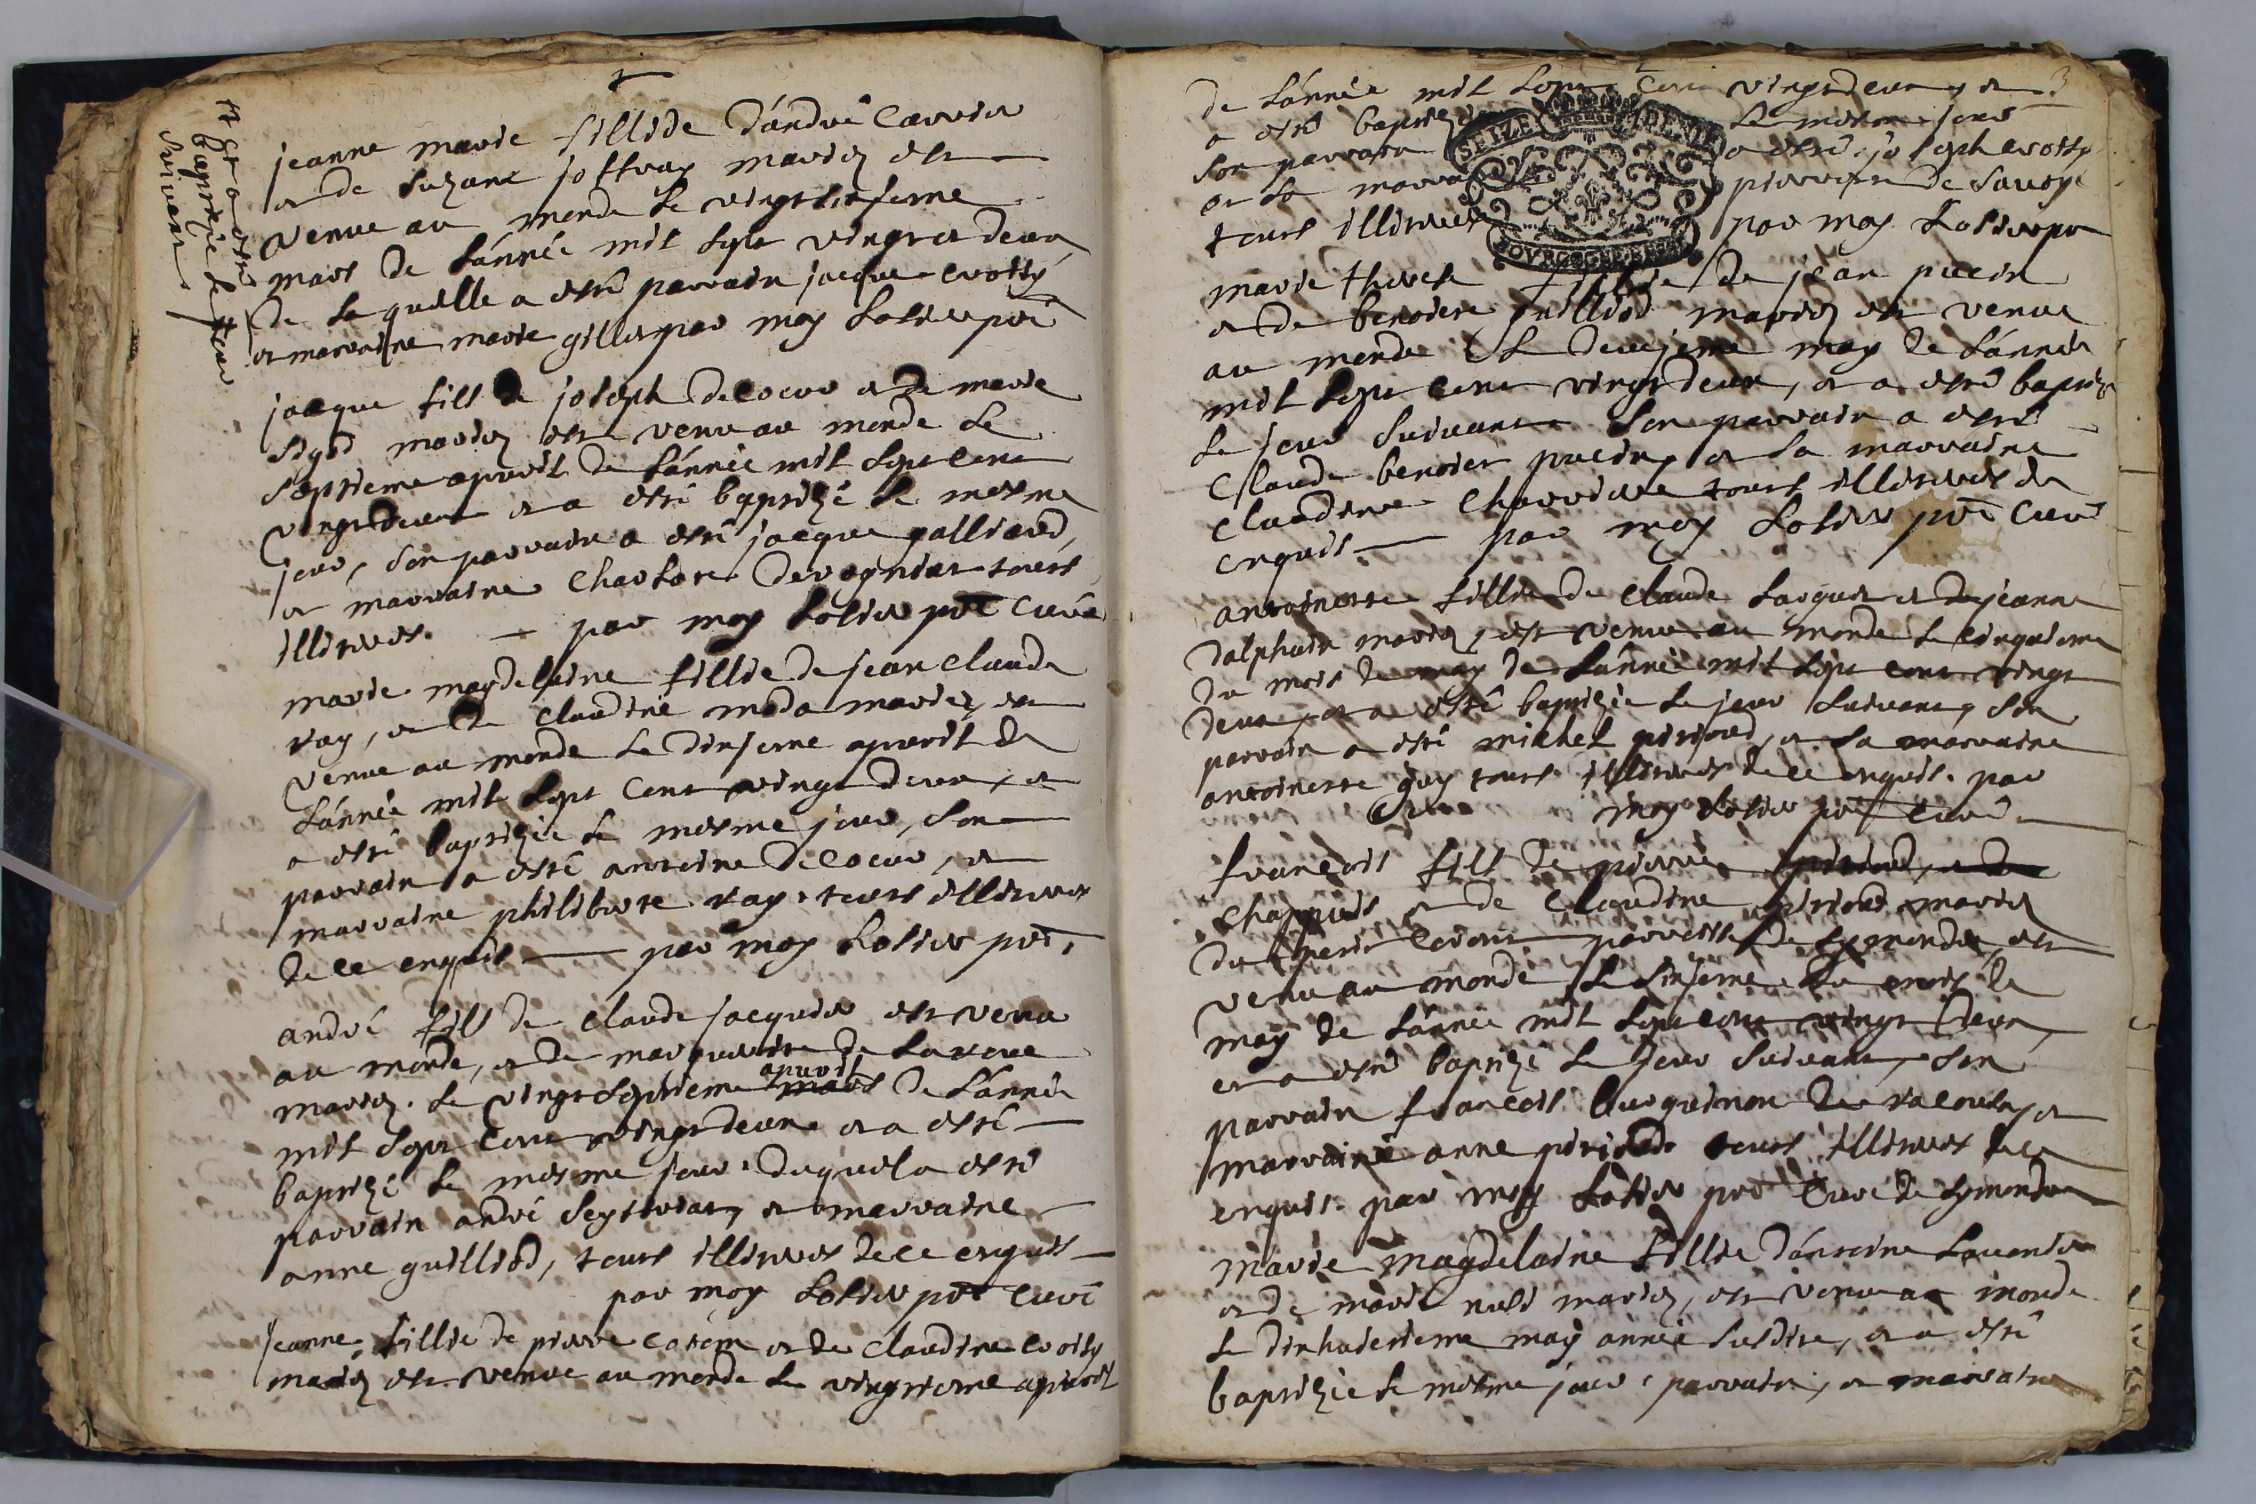 et a esté
baptizée le jour
suivant
jeanne marie fillie d'andré carrier
et de suzane joffray mariez est
venue au monde le vingt sixieme
mars de l'année mil sept vingt et deux
de laquelle a esté parrain jacque crotty
et marraine marie gillet par moy Lolier pre
jacque fils de joseph decoeur et de marie
mariez est venu au monde le
septieme apvril de l'année mil sept cent
vingt deux et a esté baptizé le mesme
jour, son parrain a esté jacque palliard,
et marraine Charlote tous
illiterez. par moy Lolier pre Curé
marie magdelaine fillie de jean claude
ray, et de claudine moda mariez, est
venue au monde le dixieme apvril de
l'année mil sept Cent vingt deux, et
a esté baptizée le mesme jour, son
parrain a esté antoine decoeur, et
marraine philiberte ray, tous illiterez
de ce enquis par moy Lolier pre,
andré fils de claude jacquier est venu
au monde, et de marguerite de la roue
mariez. le vingt septieme apvril mars de l'année
mil sept Cent vingt deux et a esté
baptizé le mesme jour, duquel a esté
parrain andré et marraine
anne guilliod, tous illiterez de ce enquis
par moy Lolier pre Curé
jeanne fillie de pierre et de claudine crotty
mariez est venue au monde le vingtieme apvril
de l'année mil sept Cent vingt deux, et
a esté baptizée le mesme jour
son parrain a esté joseph crotty
et la marraine de Savoye
tous illiterez par moy Lolier pre
SEIZE DENIE
BOVRGOGNE BRESSE
marie therese fillie de jean pucin
et de benoiste guilliod mariez est venue
au monde le deuxieme may de l'année
mil sept cent vingt deux, et a esté baptizée
le jour suivant son parrain a esté
Claude benoist pucin, et la marraine
Claudine tous illiterez de
enquis par moy Lolier pre Curé
antoinette fillie de claude et de jeanne
dalphuin mariez, est venue au monde le cinquieme
du mois de may de l'année mil sept cent vingt
deux, et a esté baptizée le jour suivant, son
parrain a esté michel piriod, et la marraine
antoinette guy tous illiterez de ce enquis. par
moy Lolier pre Curé
françois fils de pierre piriod, et de
chappuis et de Claudine piriod mariez
du petit parroisse de symandre, est
venu au monde le sixieme du mois de
may de l'année mil sept cent vingt deux,
et a esté baptizé le jour suivant, son
parrain françois de et
marraine anne piriod tous illiterez de ce
enquis. par moy Lolier pre Curé de symandre
marie magdelaine fillie d'antoine
et de marie mariez, est venue au monde
le dixhuictieme may année susdite, et a esté
baptizée le mesme jour, parrain, et marraine